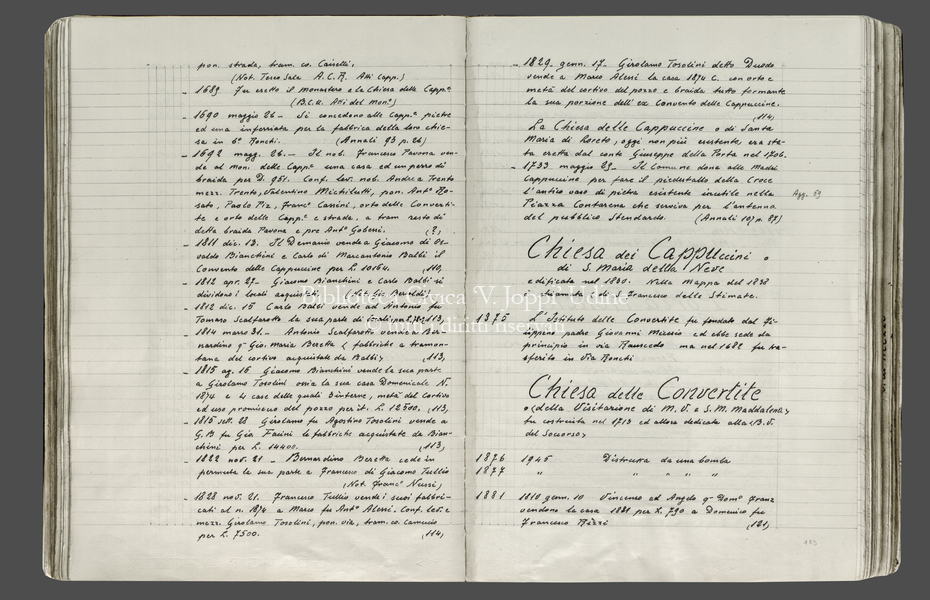 pon. strada, tram. co. Caiselli.
(Not. Tercosale A.C.A. Atti Capp.)
_ 1689 Fu eretto il monastero e la Chiesa delle Capp.e
(B.C.U. Atti del Mon.o)
_ 1690 maggio 26 - Si concedono alle Capp.e pietre
ed una inferriata per la fabbrica della loro chie-
sa in b.o Ronchi. (Annali 93 p. 26)
_ 1692 magg. 26. - Il nob. Francesco Pavona ven-
de al Mon. delle Capp.e una casa ed un pezzo di
braida per D. 951. Conf. lev. nob. Andrea Trento
mezz. Trento, Valentino Michilutti, pon. Ant.o Ro-
sato, Paolo Piz, Franc.o Cassini, orto delle Converti-
te e orto delle Capp.e e strada, a tram resto di
detta braida Pavona e pre Ant.o Gobessi. (?)
_ 1811 dic. 12. Il Demanio vende a Giacomo di Os-
valdo Bianchini e Carlo di Marcantonio Balbi il
Convento delle Cappuccine per L. 10164. (110,
_ 1812 apr. 27. Giacomo Bianchini e Carlo Balbi si
dividono i locali acquistati
_ 1812 dic. 15. Carlo Balbi vende ad Antonio fu
Tomaso Scalfarotto la sua parte di (113,
_ 1814 marzo 31. - Antonio Scalfarotto vende a Ber-
nardino q. Gio. Maria Beretta (fabbriche a tramon-
tana del cortivo acquistate da Balbi) (113,
_ 1815 ag. 16 Giacomo Bianchini vende la sua parte
a Girolamo Tosolini ossia la sua casa Domenicale N.
1874 e 4 case delle quali 3 interne, metà del cortivo
ed uso promiscuo del pozzo per it. L. 12500. (113,
_ 1815 sett. 28 Girolamo fu Agostino Tosolini vende a
G.B. fu Gio Facini le fabbriche acquistate da Bian-
chini per L. 14400. (113,
_ 1822 nov. 21 - Bernardino Beretta cede in
permuta la sua parte a Francesco di Giacomo Tullio
(Not. Franc.o Nussi)
_ 1828 nov. 21. Francesco Tullio vende i suoi fabbri-
cati al n. 1874 a Marco fu Ant.o Alessi. Conf. lev. e
mezz. Girolamo Tosolini, pon. via, tram. co. Camucio
per L. 7500. (114)
_ 1829 genn. 17 - Girolamo Tosolini detto Duodo
vende a Marco Alessi la casa 1874 C. con orto e
metà del cortivo del pozzo e braida tutto formante
la sua porzione dell'ex Convento delle Cappuccine.
(114)
La Chiesa delle Cappuccine o di Santa
Maria di Loreto, oggi non più esistente era sta-
ta eretta dal conte Giuseppe della Porta nel 1706.
_ 1733 maggio 29 - Il Comune dona alle Madri
Cappuccine per fare il piedestallo della Croce
l'antico vaso di pietra esistente inutile nella Agg. 59
Piazza Contarena che serviva per l'antenna
del pubblico Stendardo. (Annali 107 p. 87)
Chiesa dei Cappuccini o
di S. Maria della Neve
edificata nel 1830. Nella Mappa del 1838
S. Francesco delle Stimate.
1375 L'Istituto delle Convertite fu fondato dal Fi-
lippino padre Giovanni Missio ed ebbe sede da
principio in via Rauscedo ma nel 1682 fu tra-
sferito in via Ronchi
Chiesa delle Convertite
o (della Visitazione di M.V. e S.M. Maddalena)
fu costruita nel 1713 ed allora dedicata alla (B.V.
del Soccorso)
1876 1945 Distrutta da una bomba
1877 " " " " "
1881 1810 genn. 10 Vincenzo ed Angelo q. Dom.o Franz
vendono la casa 1881 per L. 790 a Domenico fu
Francesco Rizzi (121)
183
Biblioteca Civica 'V. Joppi' Udine
© tutti i diritti riservati